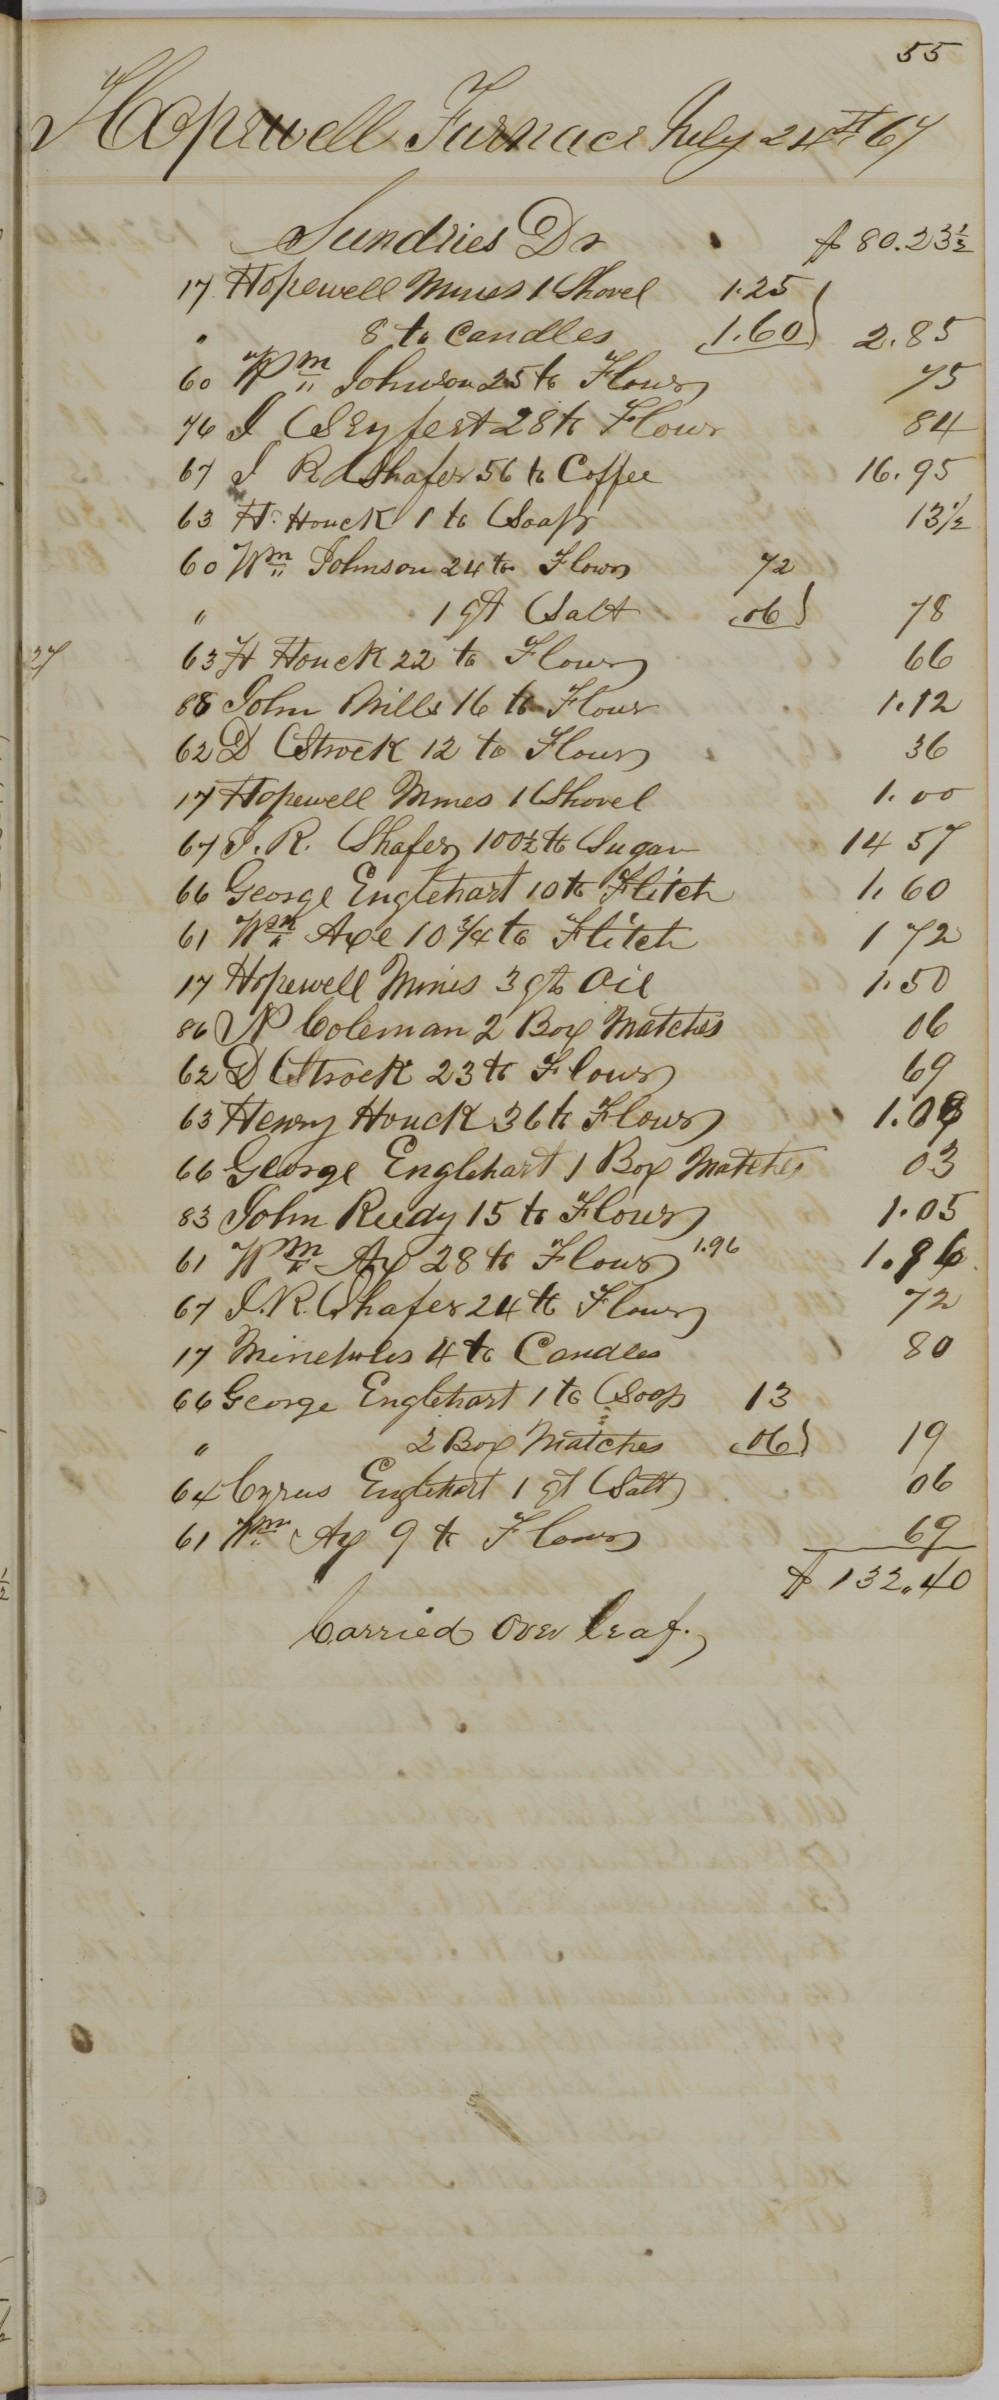 55
Hopewell Furnace July 24th 67
Sundries Dr $ 80.23½
17 Hopewell Mines 1 Shovel 1.25
" 8 lb Candles 1.60 2.85
60 Wm Johnson 25 lb Flour 75
76 J Seyfert 28 lb Flour 84
67 J R Shafer 56 lb Coffee 16.95
63 H. Houck 1 lb Soap 13½
60 Wm Johnson 24 lb Flour 72
" 1 qt Salt .06 78
27
63 H Houck 22 lb Flour 66
88 John Mills 16 lb Flour 1.12
62 D Strock 12 lb Flour 36
17 Hopewell Mines 1 Shovel 1.00
67 J. R. Shafer 100½ lb Sugar 14 57
66 George Englehart 10 lb Flitch 1.60
61 Wm Axe 10 ¾ lb Flitch 1 72
17 Hopewell Mines 3 qts Oil 1.50
86 N Coleman 2 Box Matches 06
62 D Strock 23 lb Flour 69
63 Henry Houck 36 lb Flour 1.08
66 George Englehart 1 Box Matches 03
83 John Rudy 15 lb Flour 1.05
61 Wm Ax 28 lb Flour 1.96 1.96
67 J. R. Shafer 24 lb Flour 72
17 Mineholes 4 lb Candles 80
66 George Englehart 1 lb Soap 13
" 2 Box Matches .06 19
64 Cyrus Englehart 1 qt Salt 06
61 Wm Ax 9 lb Flour 69
$ 132.40
Carried Over leaf.